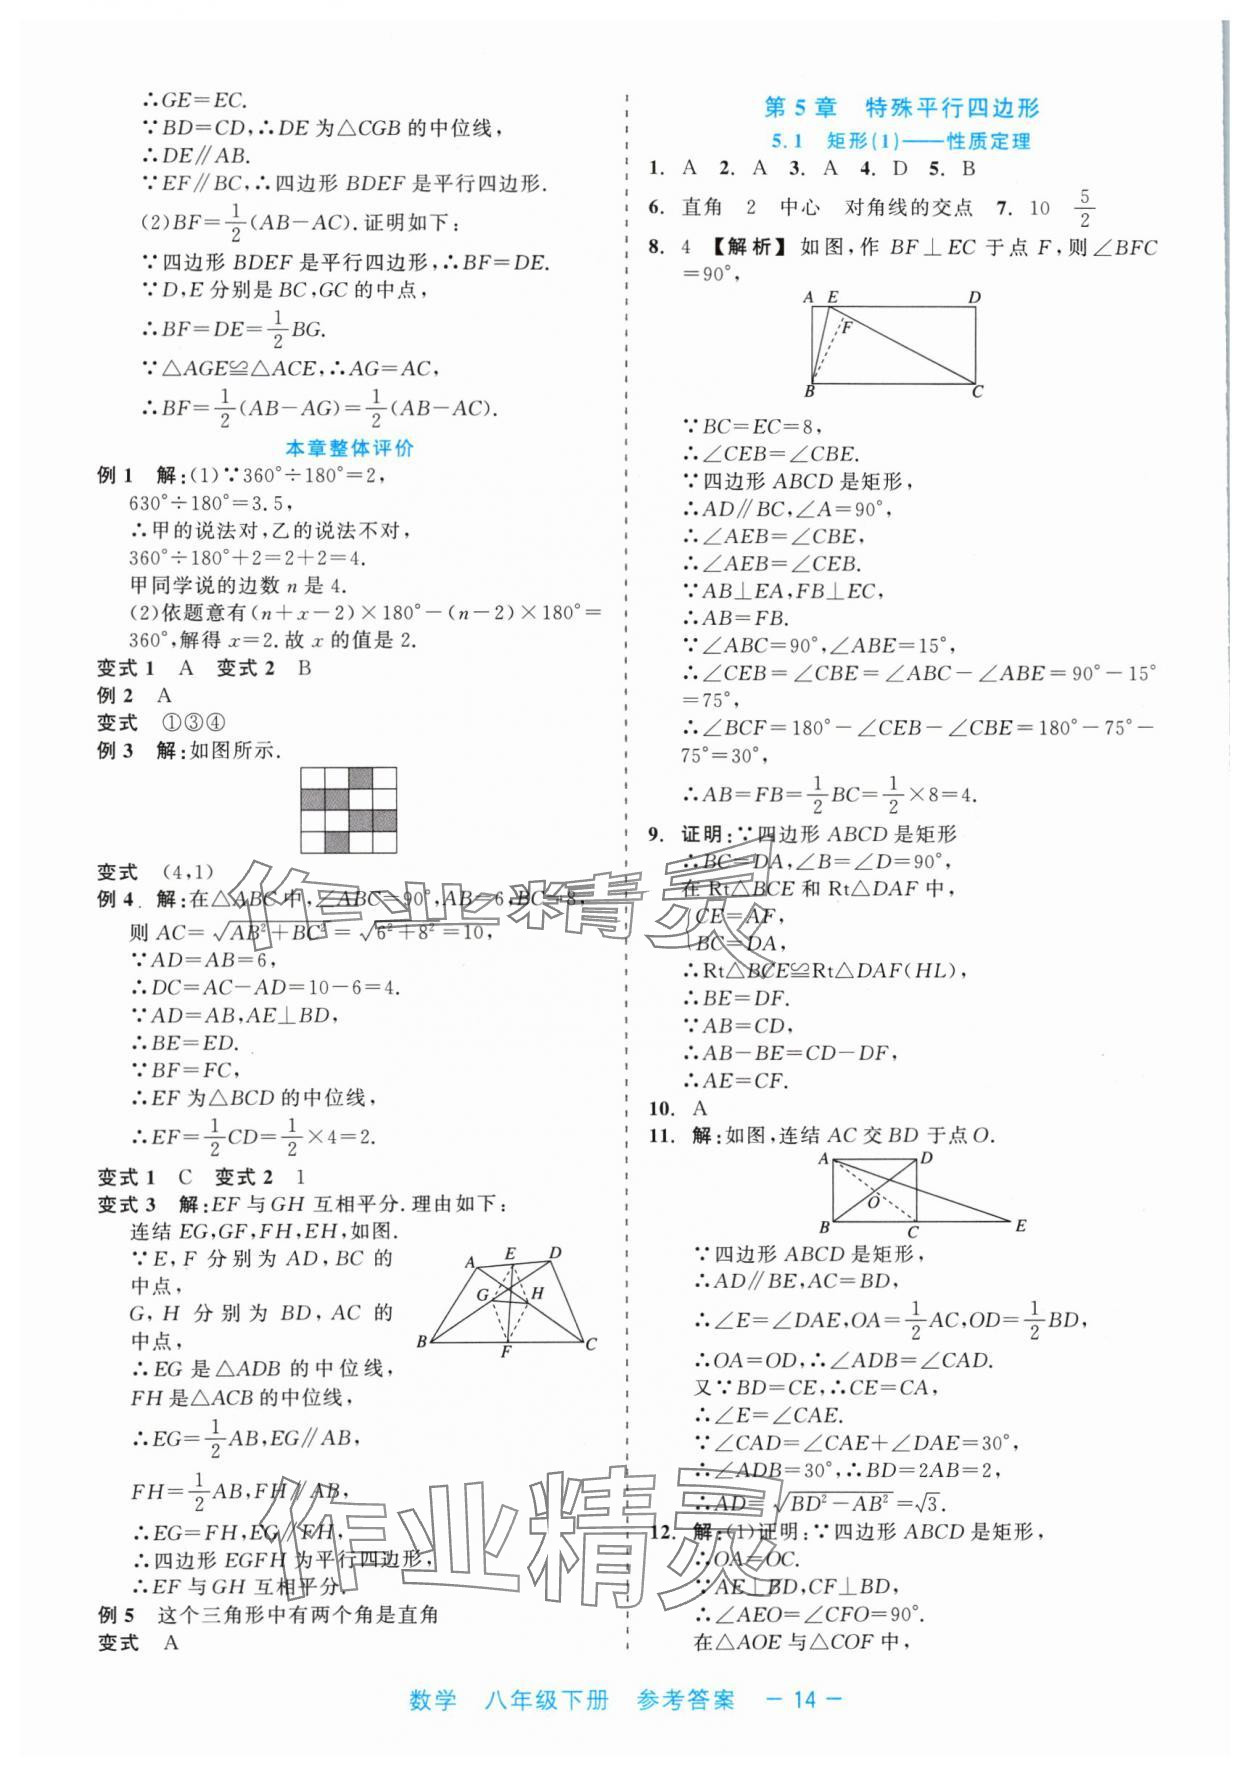 ∴GE=EC.
∵BD=CD,∴DE为△CGB的中位线,
∴DE∥AB.
∵EF∥BC,∴四边形BDEF是平行四边形.
(2)BF=1/2(AB-AC).证明如下:
∵四边形BDEF是平行四边形,∴BF=DE.
∵D,E分别是BC,GC的中点,
∴BF=DE=1/2BG.
∵△AGE≌△ACE,∴AG=AC,
∴BF=1/2(AB-AG)=1/2(AB-AC).
本章整体评价
例1 解:(1)∵360°÷180°=2,
630°÷180°=3.5,
∴甲的说法对,乙的说法不对,
360°÷180°+2=2+2=4.
甲同学说的边数n是4.
(2)依题意有(n+x-2)×180°-(n-2)×180°=
360°,解得x=2.故x的值是2.
变式1 A 变式2 B
例2 A
变式 ①③④
例3 解:如图所示.
变式 (4,1)
例4 解:在△ABC中,∠ABC=90°,AB=6,BC=8,
则AC=√(AB²+BC²)=√(6²+8²)=10,
∵AD=AB=6,
∴DC=AC-AD=10-6=4.
∵AD=AB,AE⊥BD,
∴BE=ED.
∵BF=FC,
∴EF为△BCD的中位线,
∴EF=1/2CD=1/2×4=2.
变式1 C 变式2 1
变式3 解:EF与GH互相平分.理由如下:
连结EG,GF,FH,EH,如图.
∵E,F分别为AD,BC的
中点,
G,H分别为BD,AC的
中点,
∴EG是△ADB的中位线,
FH是△ACB的中位线,
∴EG=1/2AB,EG∥AB,
FH=1/2AB,FH∥AB,
∴EG=FH,EG∥FH,
∴四边形EGFH为平行四边形,
∴EF与GH互相平分.
A E D
G H
B F C
例5 这个三角形中有两个角是直角
变式 A
第5章 特殊平行四边形
5.1 矩形(1)——性质定理
1. A 2. A 3. A 4. D 5. B
6. 直角 2 中心 对角线的交点 7. 10 5/2
8. 4 【解析】如图,作BF⊥EC于点F,则∠BFC
=90°,
A E D
F
B C
∵BC=EC=8,
∴∠CEB=∠CBE.
∵四边形ABCD是矩形,
∴AD∥BC,∠A=90°,
∴∠AEB=∠CBE,
∴∠AEB=∠CEB.
∵AB⊥EA,FB⊥EC,
∴AB=FB.
∵∠ABC=90°,∠ABE=15°,
∴∠CEB=∠CBE=∠ABC-∠ABE=90°-15°
=75°,
∴∠BCF=180°-∠CEB-∠CBE=180°-75°-
75°=30°,
∴AB=FB=1/2BC=1/2×8=4.
9. 证明:∵四边形ABCD是矩形
∴BC=DA,∠B=∠D=90°,
在Rt△BCE和Rt△DAF中,
{CE=AF,
BC=DA,
∴Rt△BCE≌Rt△DAF(HL),
∴BE=DF.
∵AB=CD,
∴AB-BE=CD-DF,
∴AE=CF.
10. A
11. 解:如图,连结AC交BD于点O.
A D
O
B C E
∵四边形ABCD是矩形,
∴AD∥BE,AC=BD,
∴∠E=∠DAE,OA=1/2AC,OD=1/2BD,
∴OA=OD,∴∠ADB=∠CAD.
又∵BD=CE,∴CE=CA,
∴∠E=∠CAE.
∵∠CAD=∠CAE+∠DAE=30°,
∴∠ADB=30°,∴BD=2AB=2,
∴AD=√(BD²-AB²)=√3.
12. 解:(1)证明:∵四边形ABCD是矩形,
∴OA=OC.
∵AE⊥BD,CF⊥BD,
∴∠AEO=∠CFO=90°.
在△AOE与△COF中,
作业精灵
作业精灵
数学 八年级下册 参考答案 -14-